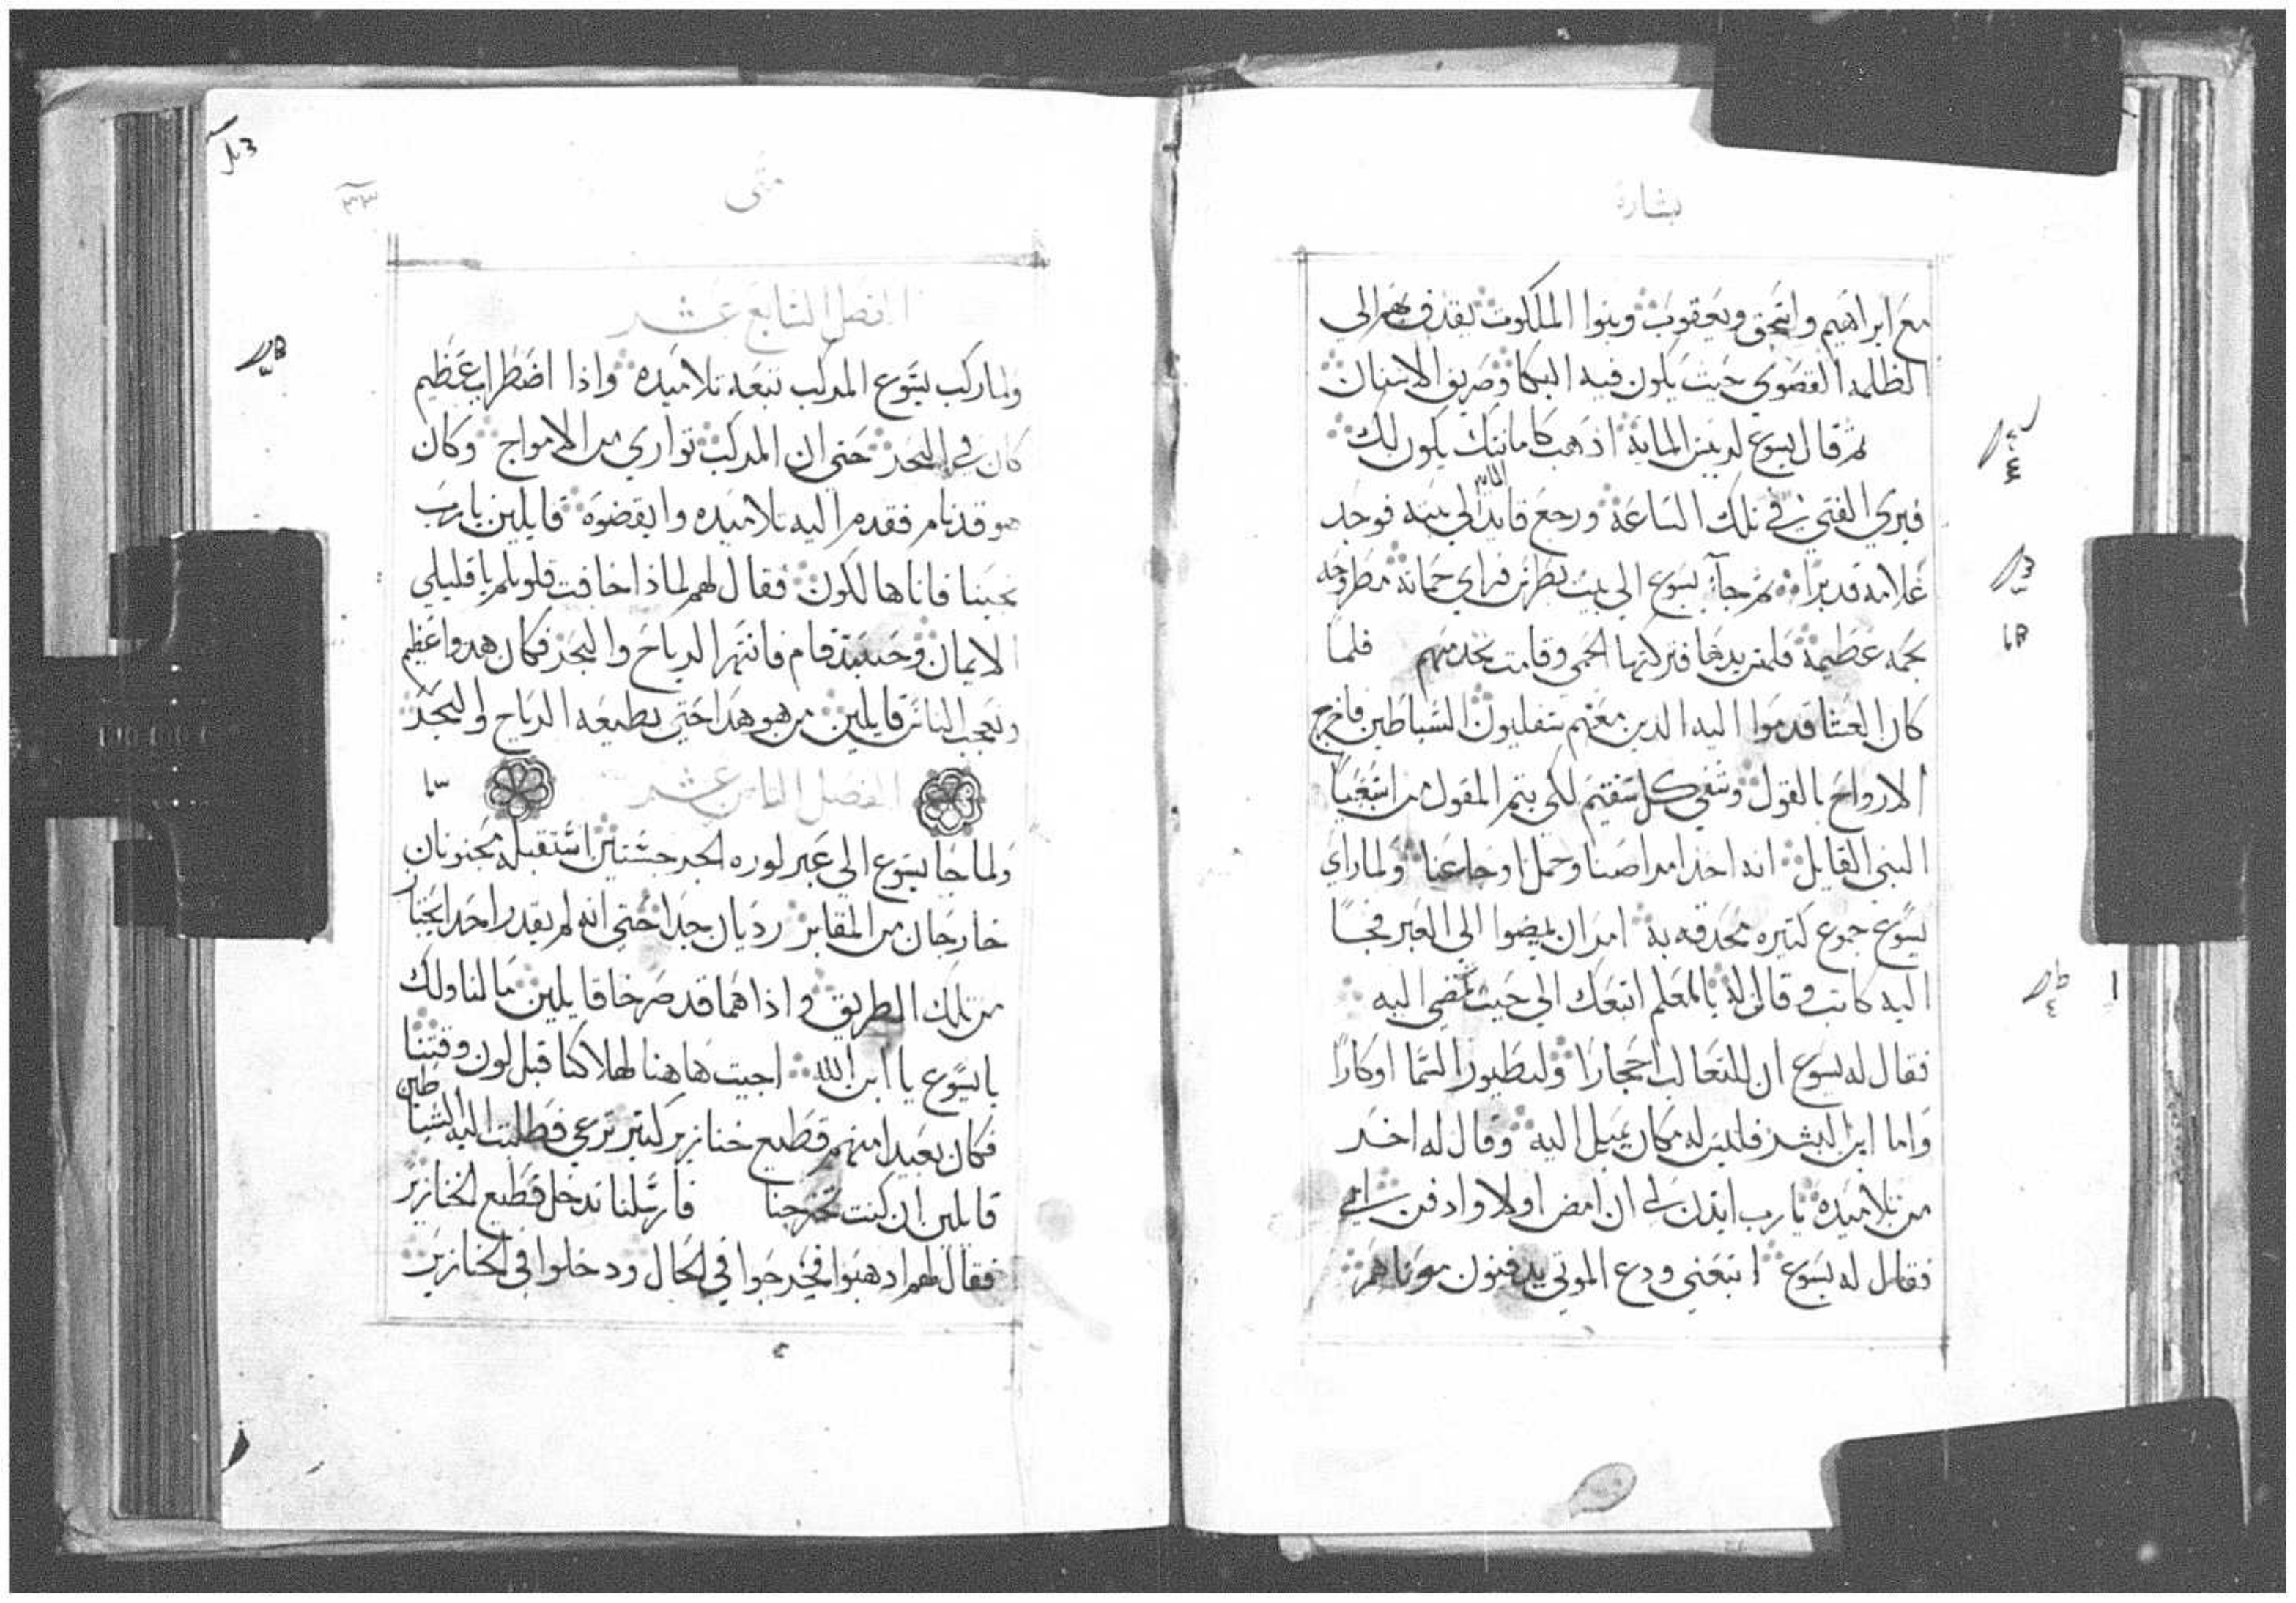 بشارة
مع ابراهيم واسحق ويعقوب وبنوا الملكوت يقدف بهم الي
الظلمه القصوي حيث يكون فيه البكا وصريف الاسنان
ثم قال يسوع لرييس المايه اذهب كامانتك يكون لك
فبري الفتي في تلك الساعة ورجع قايد الي بيته فوجد
الماىه
غلامه قد برا ثم جآ يسوع الي بيت بطرس فراي حماته مطروحه
بحمه عظيمة فلمس يدها فتركتها الحمي وقامت تخدمهم فلما
كان العشا قدموا اليه الدين معهم شفليون الشياطين فاخرج
الارواح بالقول وشفي كل سقيم لكي يتم المقول من اشعيا
النبي القايل انه اخذ امراضنا وحمل اوجاعنا ولما راي
يسوع جموع كتيره محدقه به امر ان يمضوا الي العبر فجا
اليه كاتب وقال له يا معلم اتبعك الي حيت تمضي اليه
فقال له يسوع ان للتعالب احجارا ولطيور السما اوكارا
واما ابن البشر فليس له مكان يميل اليه وقال له اخر
من تلاميده يا رب ايدن لي ان امض اولا وادفن ابي
فقال له يسوع اتبعني ودع الموتي يدفنون موتاهم
متى
٣٣
الفصل السابع عشر
ولما ركب يسوع المركب تبعه تلاميده واذا اضطراب عظيم
كان في البحر حتي ان المركب تواري من الامواج وكان
هو قد نام فقدم اليه تلاميده وايقضوه قايلين يا رب
نجينا فاناها لكون فقال لهم لماذا خافت قلوبكم يا قليلي
الايمان وحينيد قام فانتهر الرياح والبحر فكان هدوا عظيم
وتعجب الناس قايلين من هو هدا حتي تطيعه الرياح والبحر
الفصل التامن عشر
ولما جا يسوع الي عبر لوره الجرجسّين استقبله مجنونان
خارجان من المقابر رديان جدا حتي انه لم يقدر احد ايجتاز
من تلك الطريق واذا هما قد صرخا قايلين ما لنا ولك
يا يسوع يا ابن الله اجيت هاهنا لهلاكنا قبل لون وقتنا
فكان بعيدا منهم قطيع خنازير كتير ترعي فطلبت اليه الشياطين
قايلين ان كنت تخرجنا فارسلنا ندخل قطيع الخنازير
فقال لهم ادهبوا فخرجوا في الحال ودخلوا في الخنازير